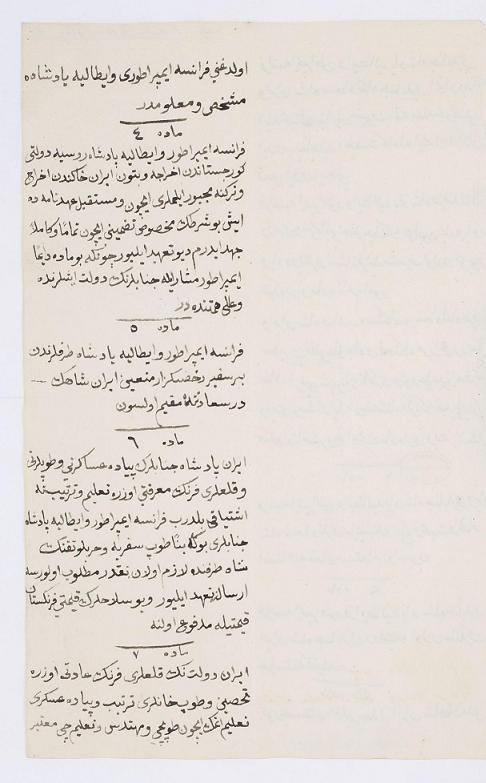 اولدغنی فرانسه ایمپراطوری وایطالیه پادشاه
مشخص ومعلومدر
ماده ٤
فرانسه ایمپراطور وایطالیه پادشاه روسیه دولتی
کورجستاندن اخراجه وبتون ایران خاکندن اخراج
وترکنه مجبور ایلمک ایچون ومستقبل عهدنامه ده
ایش بو شرطک مخصوص تضمینی ایچون تماما وکاملا
جهد ایدرم دیو تعهد ایلیور چونکه بو ماده دایما
ایمپراطور مشارالیه جنابلرنک دولت ایشلرنده
وعقلی همتنده در
ماده ٥
فرانسه ایمپراطور وایطالیه پادشاه طرفلرندن
بر سفیر رخصتکزار منعیی ایران شاهک
درسعادتنده مقیم اولسون
ماده ٦
ایران پادشاه جنابلرک پیاده عساکرنی وطوپلرنی
وقلعلری فرنک معرفتی اوزره تعلیم وترتیبنه
اشتیاقی بلدرب فرانسه ایمپراطور وایطالیه پادشاه
جنابلری بوکا بناً طوپ سفریه وحربلو تفنک
شاه طرفنده لازم اولان نقدر مطلوب اولورسه
ارسالی تعهد ایلیور وبو سلاحلرک قیمتی فرنکستان
قیمتیله مدفوع اولنه
ماده ٧
ایران دولتنک قلعلری فرنک عادتی اوزره
تحصنی وطوپ خانلری ترتیب وپیاده عسکری
تعلیم اتمک ایچون طوپچی ومهندس وتعلیمچی معتبر